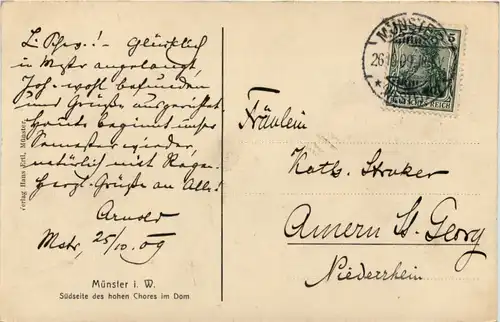 L. Schw.! – Glücklich
in Mstr angelangt,
Joh. wohl befunden
und Grüße ausgerichtet.
Heute beginnt unser
Semester wieder,
natürlich mit Regen.
Herzl. Grüße an Alle!
Arnold
Mstr, 25/10. 09
Münster i. W.
Südseite des hohen Chores im Dom
Verlag Hans Ertl, Münster.
MÜNSTER
26
REICH
5
Fräulein
Kath.
Amern St. Georg
Niederrhein